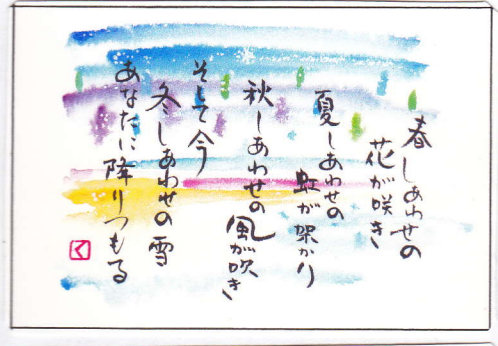 春しあわせの
花が咲き
夏しあわせの
虹が架かり
秋しあわせの
風が吹き
そして今
冬しあわせの雪
あなたに降りつもる
く